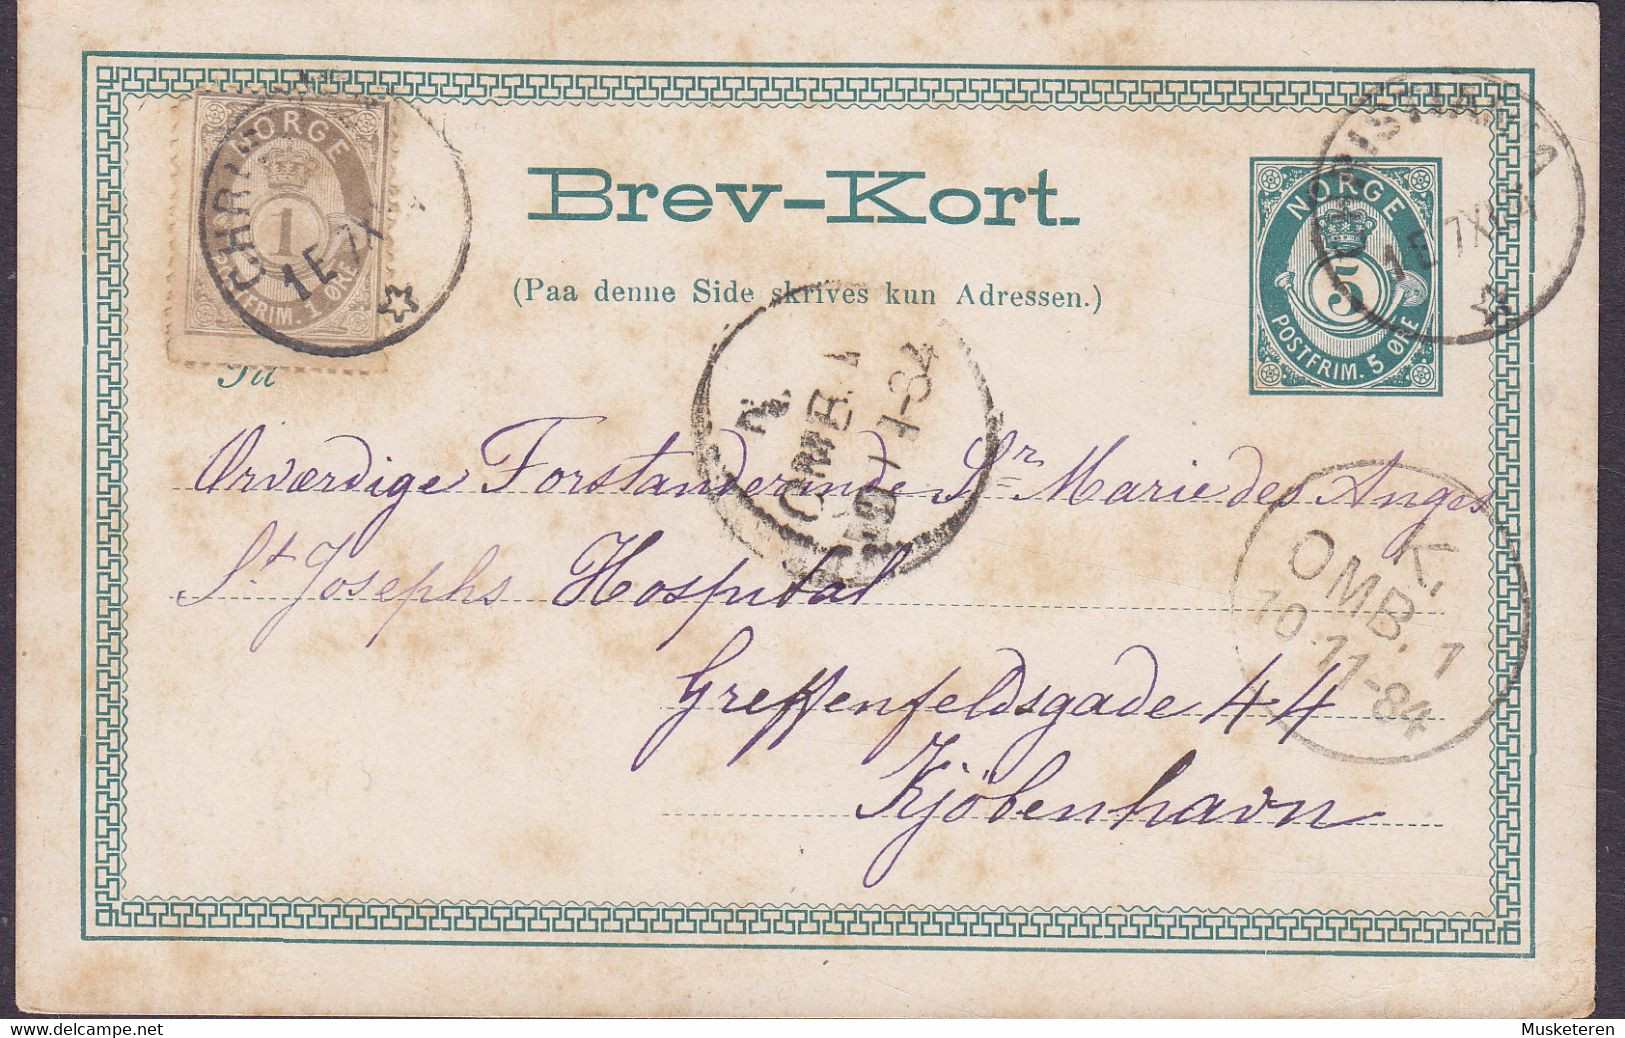 NORGE
1
POSTFRIM. 1 ØRE
1 E 7 XI
Brev-Kort.
(Paa denne Side skrives kun Adressen.)
NORGE
5
POSTFRIM. 5 ØRE
CHRISTIANIA
1 E 7 XI 84
Til
N.
OMB. 1
Ørværdige Forstanderinde Sr Marie des Anges
St Josephs Hospital
Greffenfeldsgade 44
Kjöbenhavn
K.
OMB. 1
10.11-84
www.delcampe.net
Musketeren